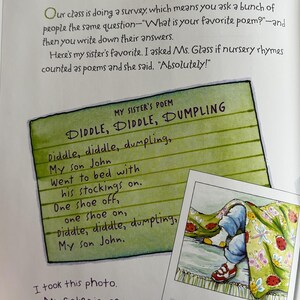 Our class is doing a survey, which means you ask a bunch of
people the same question—"What is your favorite poem?"—and
then you write down their answers.
Here's my sister's favorite. I asked Ms. Glass if nursery rhymes
counted as poems and she said, "Absolutely!"
MY SISTER'S POEM
DIDDLE, DIDDLE, DUMPLING
Diddle, diddle, dumpling,
My son John
Went to bed with
his stockings on.
One shoe off,
one shoe on,
Diddle, diddle, dumpling,
My son John.
I took this photo.